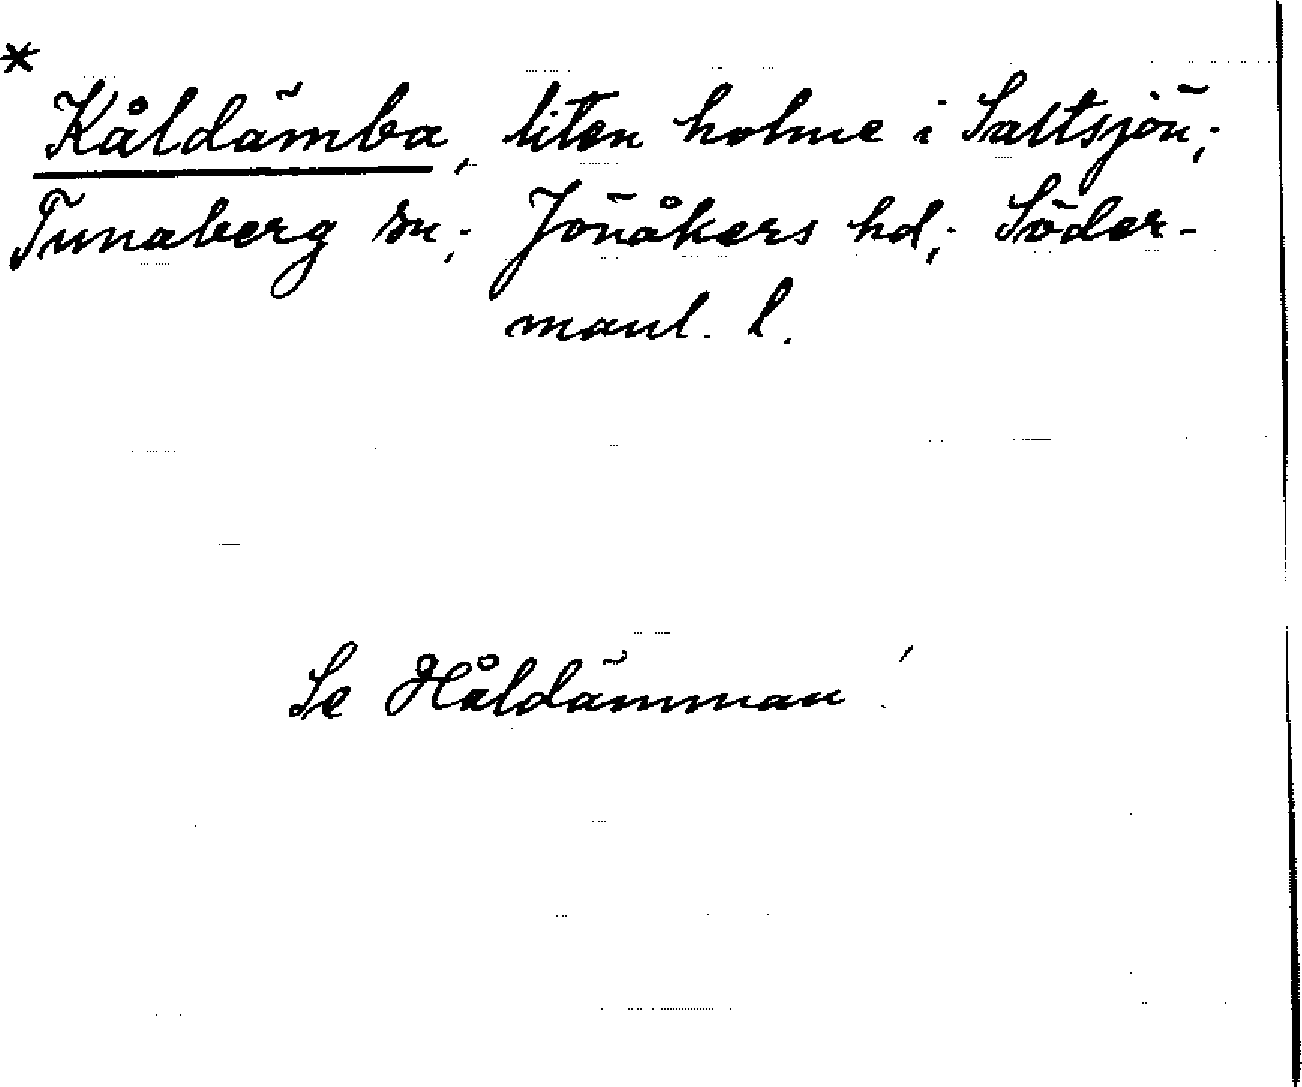 *
Kåldämba, liten holme i Saltsjön;
Tunaberg sn; Jönåkers hd; Söder-
manl. l.
Se Håldämman!